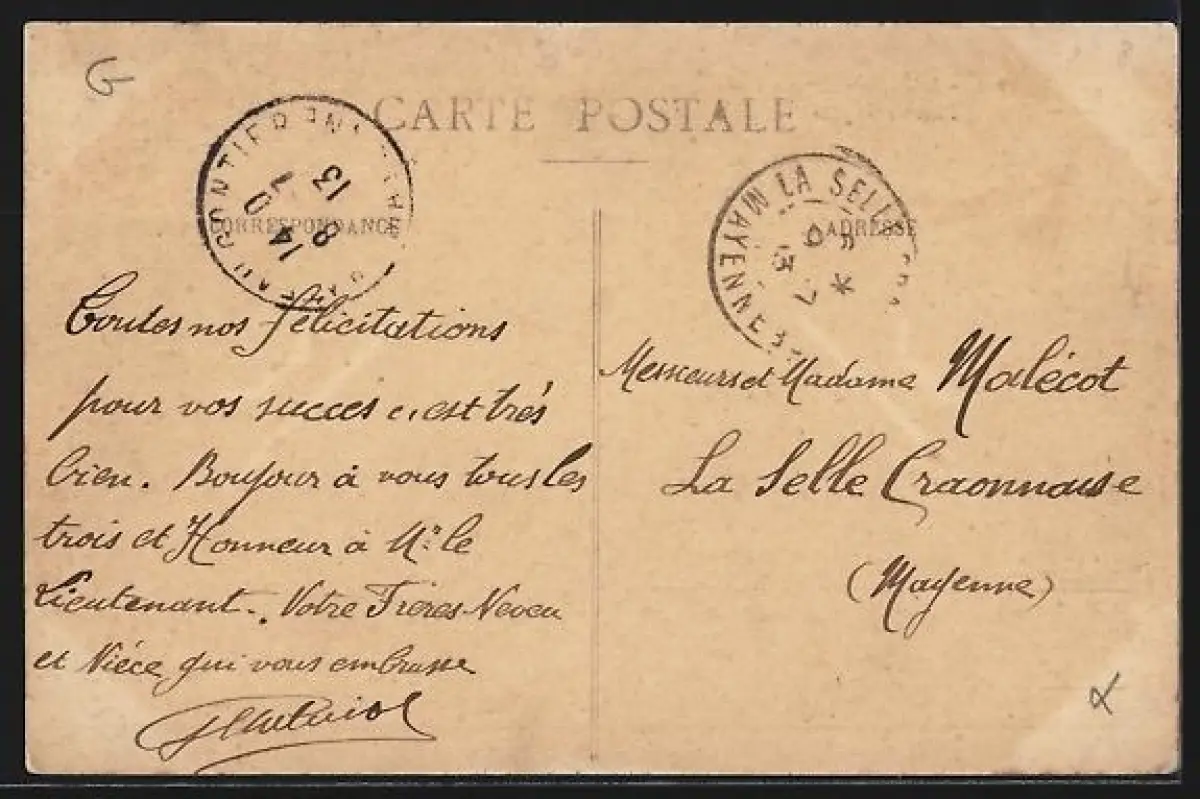 G
CARTE POSTALE
CORRESPONDANCE
ADRESSE
CONTIER
14
8 7
13
LA SELLE
MAYENNE
8 * 7
13
Toutes nos félicitations
pour vos succes c'est trés
bien. Boujour à vous tous les
trois et Honneur à Mr le
Lieutenant. Votre Freres Neveu
et Niéce qui vous embrasse
Messieurs et Madame Malécot
La Selle Craonnaise
(Mayenne)